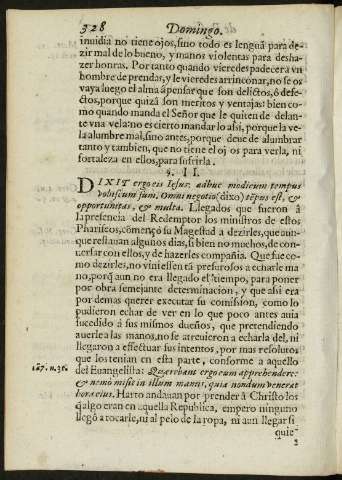 328 Domingo.
inuidia no tiene ojos, sino todo es lenguа para de-
zir mal de lo bueno, y manos violentas para desha-
zer honras. Por tanto quando vieredes padecer a vn
hombre de prendas, y le vieredes arrinconar, no se os
vaya luego el alma à pensar que son delictos, ô defe-
ctos, porque quizá son meritos y ventajas: bien co-
mo quando manda el Señor que le quiten de delan-
te vna vela: no es cierto mandarlo assi, porque la ve-
la alumbre mal, sino antes, porque deue de alumbrar
tanto y tambien, que no tiene el ojos para verla, ni
fortaleza en ellos, para sufrirla.
§. II.
DIXIT ergo eis Iesus: adhuc modicum tempus
vobiscum sum. Omni negotio (dixo) tẽpus est, &
opportunitas, & multa. Llegados que fueron â
la presencia del Redemptor los ministros de estos
Phariseos, comẽçò su Magestad a dezirles, que aun-
que restauan algunos dias, si bien no muchos, de con-
uersar con ellos, y de hazerles compañia. Que fue co-
mo dezirles, no viniessen tã presurosos a echarle ma
no, porq̃ aun no era llegado el tiempo, para poner
por obra semejante determinacion, y que assi era
por demas querer executar su comission, como lo
pudieron echar de ver en lo que poco antes auia
sucedido á sus mismos dueños, que pretendiendo
auerle a las manos, no se atreuieron a echarla del, ni
llegaron a effectuar sus intentos, por mas resolutos
que los tenian en esta parte, conforme a aquello
del Euangelista: Quærebant ergo eum apprehendere:
& nemo misit in illum manus, quia nondum venerat
hora eius. Harto andauan por prender â Christo los
q̃ algo eran en aquella Republica, empero ninguno
llegô a tocarle, ni al pelo de la ropa, ni aun llegar si
quie-